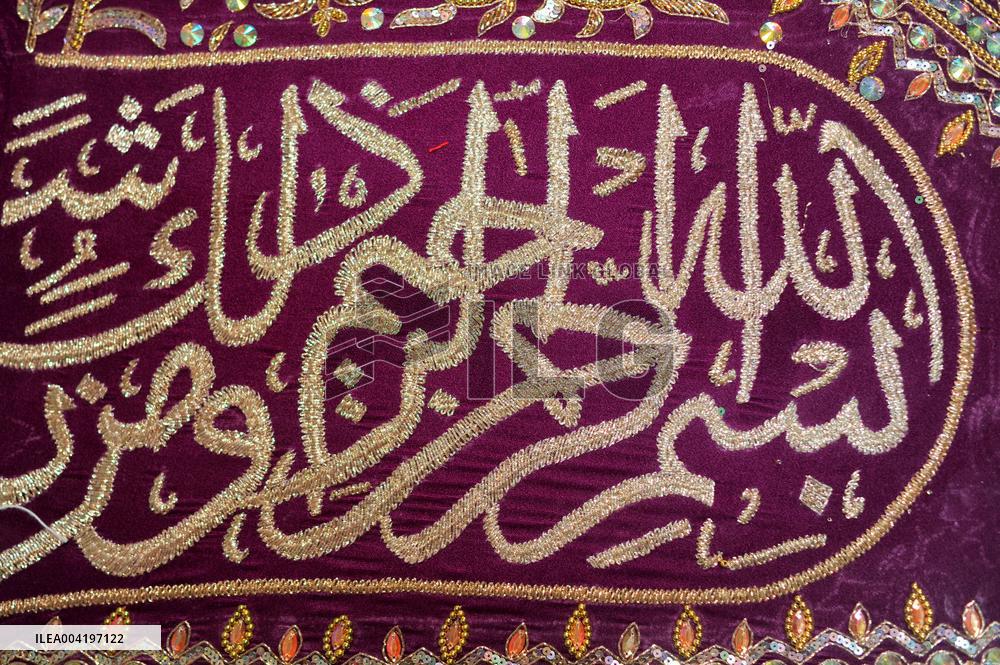 بسم الله الرحمن الرحيم ذلك ومن
IMAGE LINK GLOBAL
ILG
ILEA004197122